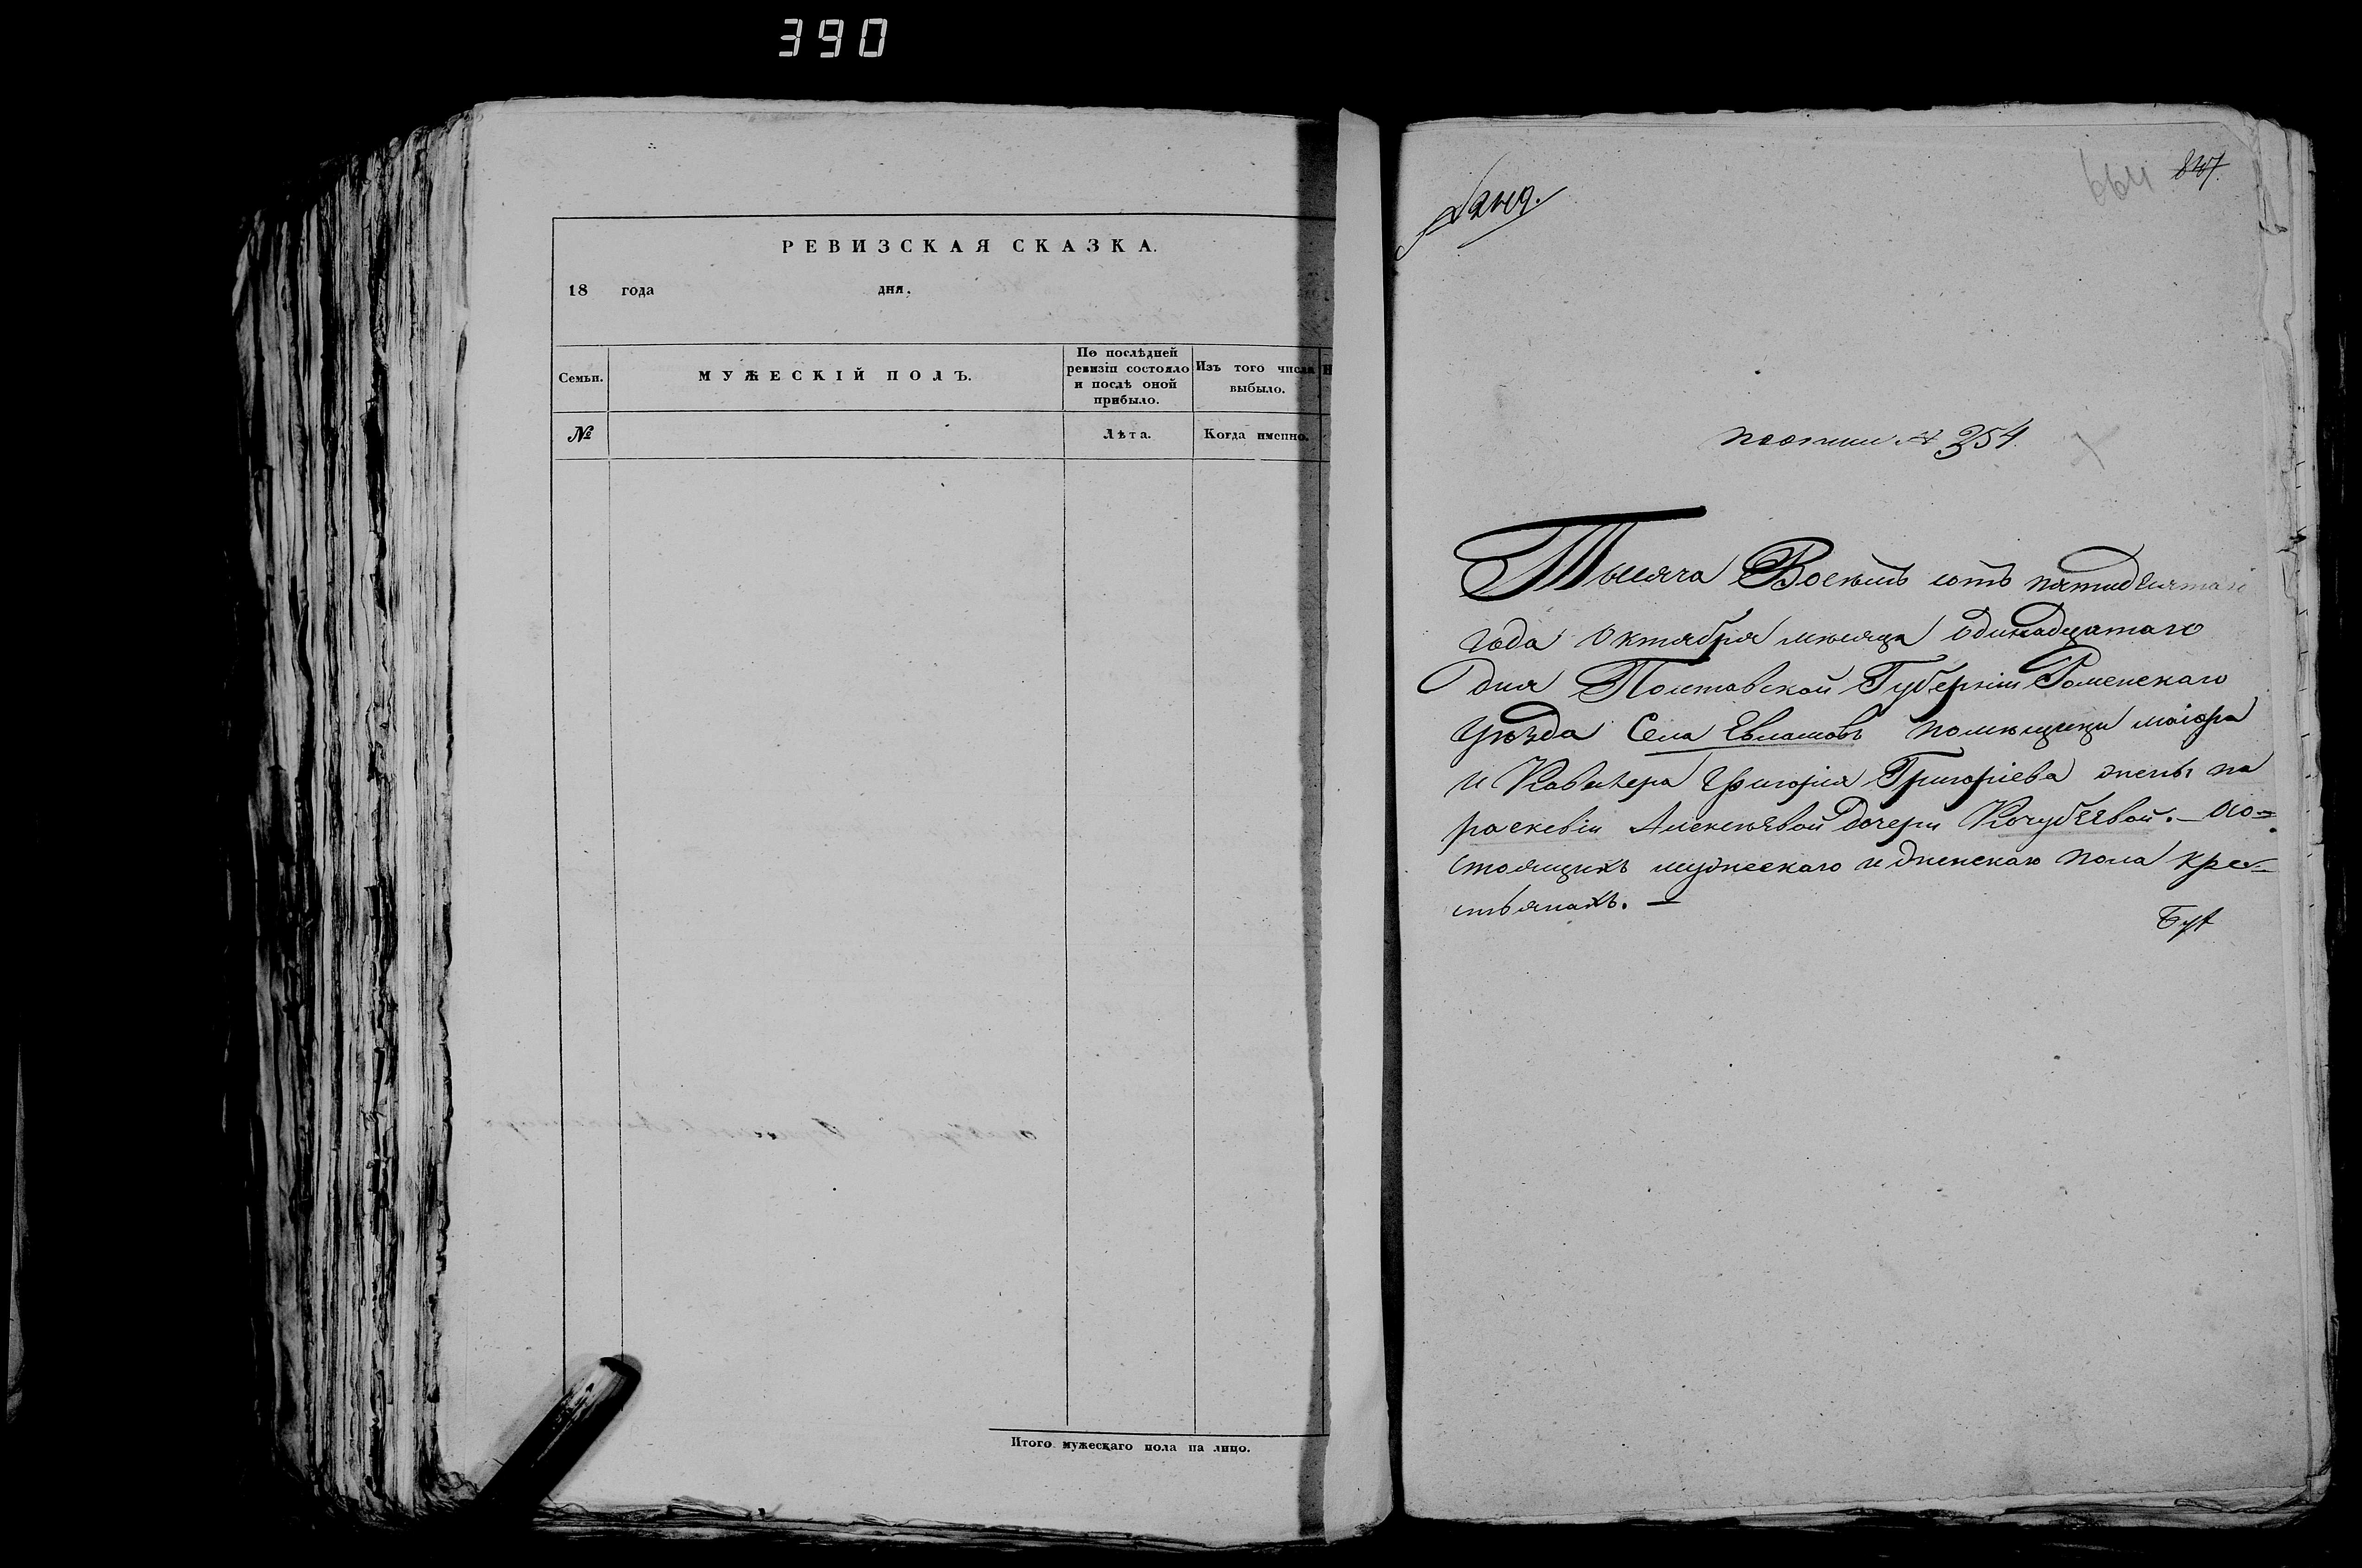 390
РЕВИЗСКАЯ СКАЗКА.
18 года дня.
Семьи.
МУЖЕСКІЙ ПОЛЪ.
По послѣдней ревизіи состояло и послѣ оной прибыло.
Изъ того числа выбыло.
№
Лѣта.
Когда именно.
Итого мужескаго пола на лицо.
664
№ 354.
Тысяча Восемь сотъ пятидесятаго
года Октября мѣсяца одинадцатаго
дня Полтавской Губерніи Роменскаго
уѣзда Села Евлашовъ помѣщицы маіора
и Кавалера Григорія Григоріева жены Па
раскевіи Алексѣевой дочери Кочубеевой. — О со=
стоящихъ мужескаго и женскаго пола кре=
стьянахъ. —